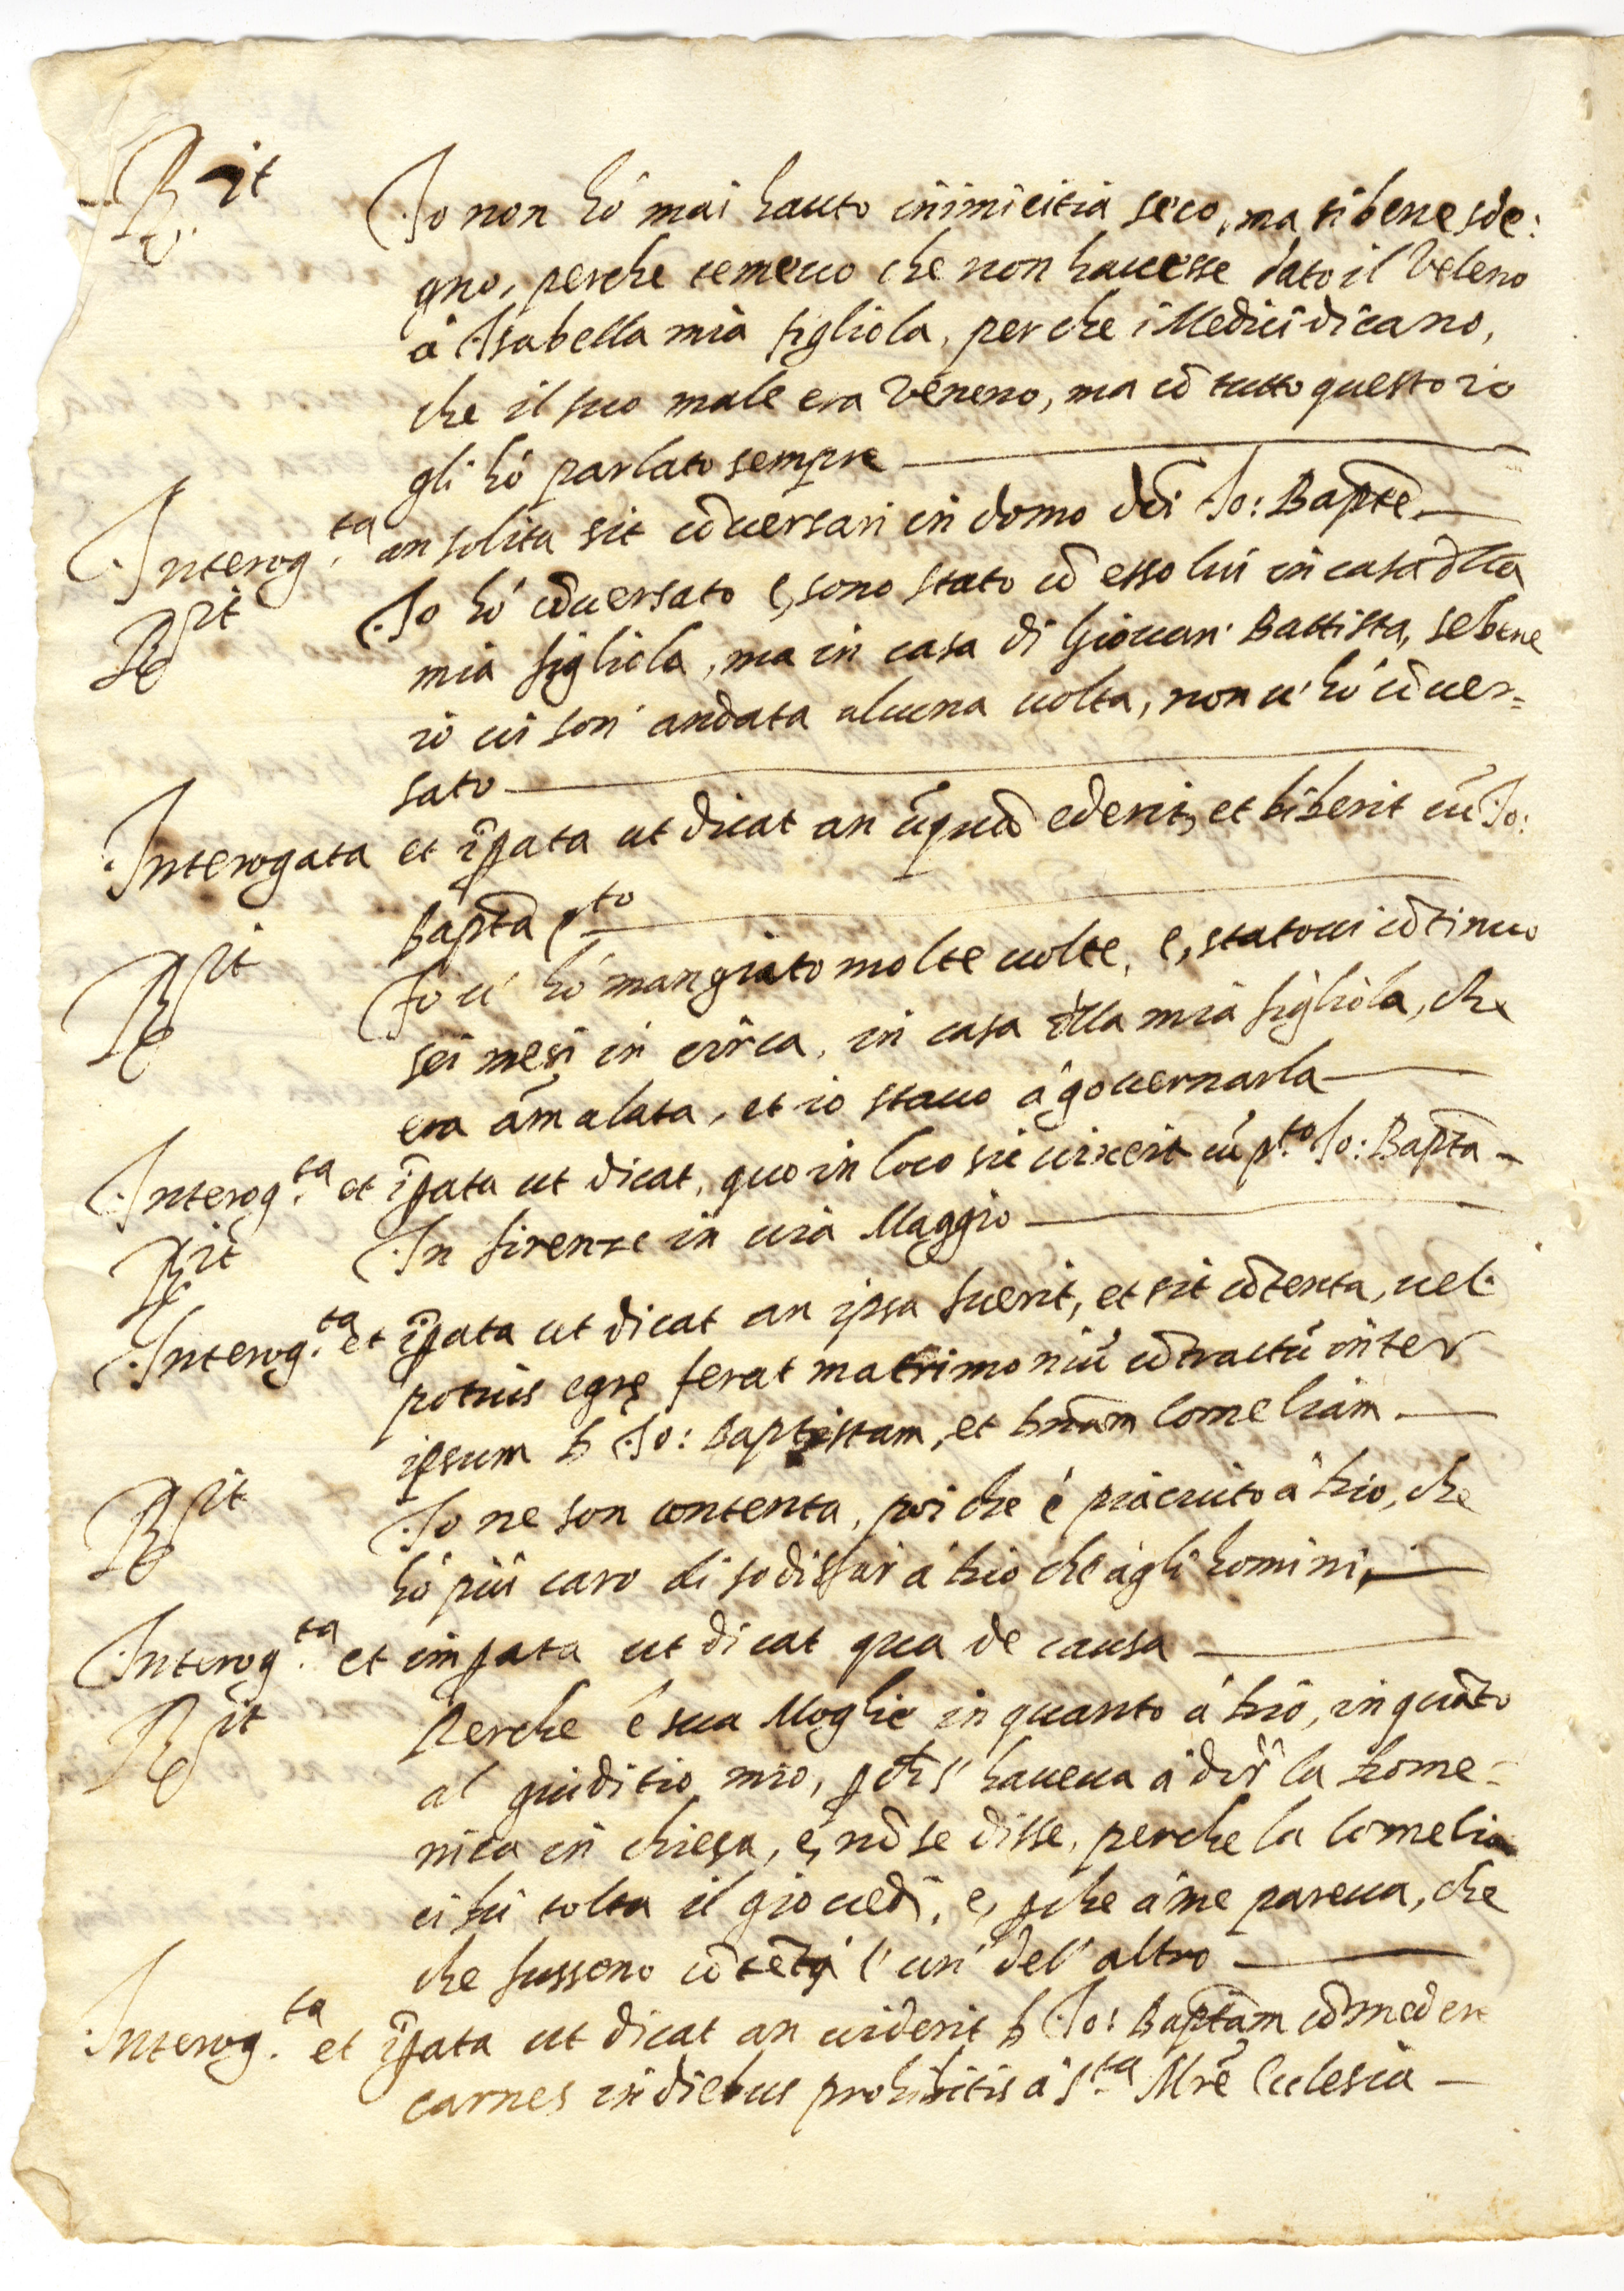 R.it Io non hò mai hauto inimicitia seco, ma si bene sde:
gno, perche temeuo che non hauesse dato il Veleno
à Isabella mia figliola, perche i Medici dicano,
che il suo male era Veneno, ma cõ tutto questo io
gli hò parlato sempre
Interog.ta an solita sit cõuersari in domo dĩ Io: Baptẽ
R.it Io hò cõuersato e, sono stato cõ esso lui in casa dlla
mia figliola, ma in casa di Giouan' Battista, sebene
io ui son' andata alcuna uolta, non u' hò cõuer=
sato
Interogata et ĩpata ut dicat an ũquã ederit, et biberit cũ Io:
Baptã p.to
R.it Io u' hò mangiato molte uolte, e, statoui cõtinuo
sei mesi in circa, in casa dlla mia figliola, che
era ãmalata, et io stauo à gouernarla
Interog.ta et ĩpata ut dicat, quo in loco sic uixerit cũ p.to Io: Baptã
R.it In firenze in uia Maggio
Interog.ta et ĩpata ut dicat an ipsa fuerit, et sit cõtenta, uel
potius egrę ferat matrimoniũ cõtractũ inter
ipsum D Io: Baptistam, et Dnãm Corneliam
R.it Io ne son contenta, poi che è piaciuto à Dio, che
hò più caro di sodisfar à Dio che agli homini,
Interog.ta et impata ut dicat qua de causa
R.it Perche è sua Moglie in quanto à Dio, in quãto
al giuditio mio, p chs' haueua à dir la Dome=
nica in chiesa, e, nõ se disse, perche la Cornelia
ci fù tolta il giouedi, e, pche à me pareua, che
che fussono cõtẽti l' un' del' altro
Interog.ta et ĩpata ut dicat an uiderit D Io: Baptãm cõmedere
carnes in diebus prohibitis à S.ta Mrẽ Eclesia